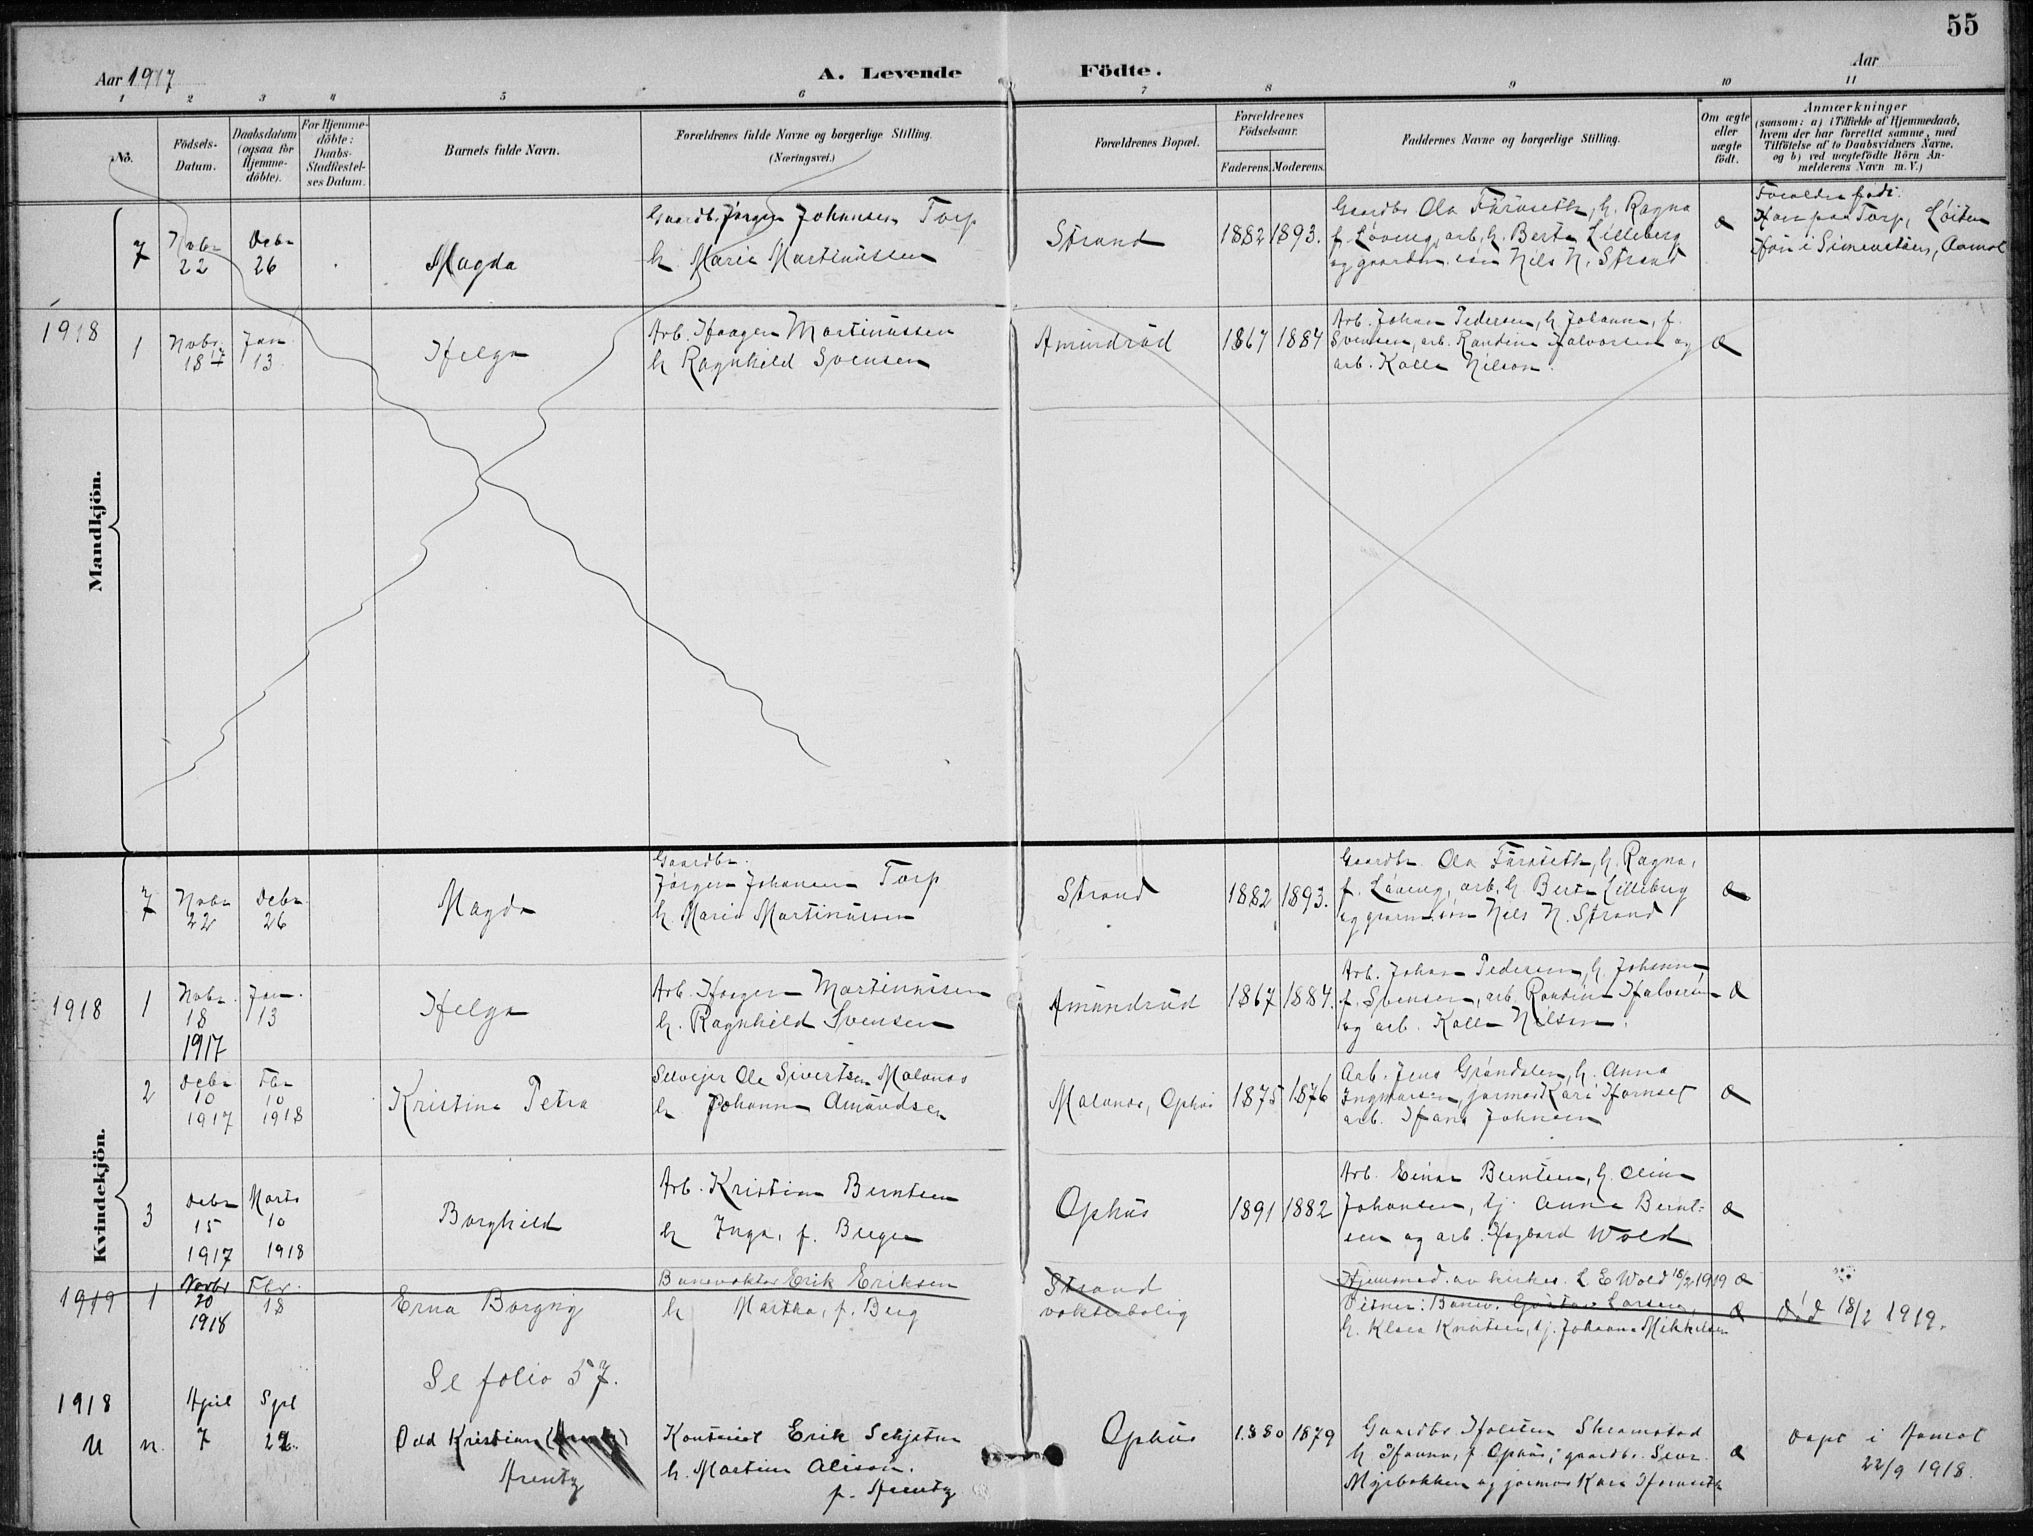 55
Aar 1917
A. Levende Födte.
Aar
1 2 3 4 5 6 7 8 9 10 11
No.
Födsels-
Datum.
Daabsdatum
(ogsaa for
Hjemme-
döbte).
For Hjemme-
döbte:
Daabs-
Stadfæstel-
ses Datum.
Barnets fulde Navn.
Forældrenes fulde Navne og borgerlige Stilling.
(Næringsvei.)
Forældrenes Bopæl.
Forældrenes
Födselsaar.
Faderens. Moderens.
Faddernes Navne og borgerlige Stilling.
Om ægte
eller
uægte
födt.
Anmærkninger
(saasom: a) i Tilfælde af Hjemmedaab,
hvem der har forrettet samme, med
Tilföielse af to Daabsvidners Navne,
og b) ved uægtefödte Börn An-
melderens Navn m.V.)
Mandkjön.
7
Nobr
22
Debr
26
Magda
Gaardbr Jørgen Johansen Torp
h. Marie Martinussen
Strand
1882 1893.
Gaardbr Ola Furuseth, h. Ragna
f. Løveng, arb. h. Berte Lilleberg
og gaardm. søn Nils N. Strand
æ
Foreldre født:
Han paa Torp, Løiten
Hun i Simenstuen, Aamot
1918
1
Nobr.
18 17
Jan
13
Helga
Arb. Haagen Martinussen
h Ragnhild Svensen
Amundrud
1867 1884
Arb. Johan Pedersen, h Johanne, f.
Svensen, arb. Randine Halvorsen og
arb. Kalle Nilson.
æ
Kvindekjön.
7
Nobr
22
Debr
26
Magda
Gaardbr.
Jørgen Johansen Torp
h Marie Martinussen
Strand
1882 1893.
Gaardbr. Ola Furuseth, h. Ragna,
f. Løveng, arb. h Berte Lilleberg
og gaardm. søn Nils N. Strand
æ
1918
1
Nobr.
18
1917
Jan.
13
Helga
Arb. Haagen Martinussen
h. Ragnhild Svensen
Amundrud
1867 1884.
Arb. Johan Pedersen, h. Johanne,
f. Svensen, arb. Randine Halvorsen
og arb. Kalle Nilsen.
æ
2
Debr
10
1917
Fbr
10
1918
Kristine Petra
Selveier Ole Sivertsen Malanes
h Johanne Amundsen
Malanes, Ophus
1875 1876
Arb. Jens Grøndalen, h. Anna
Ingmarsen, jormor Kari Hornset
arb. Hans Johnsen
æ
3
Debr
15
1917
Marts
10
1918
Borghild
Arb. Kristian Berntsen
h Inga, f. Bergen
Ophus
1891 1882
Arb. Einar Berntsen, h. Oline
Johansen, tj. Anna Bernt-
sen og arb. Hagbard Wold
æ
1919
1
Novbr
20
1918
Fbr.
18
Erna Borgny
Banevokter Erik Eriksen
h Martha, f. Berg
Strand
vokterbolig
Hjemmed. av kirkes. L E Wold 18/2 1919 æ
Vitner: Banev. Gustav Larsen,
h. Klara Knutsen, tj. Johanna Mikkelsen
æ
Død 18/2 1919.
Se folio 57.
1918
U
n.
April
7
Spt
22.
Odd Kristian
Arentz
Kontorist Erik Schjetne
h. Martine Alison.
f. Arentz
Ophus
1880 1879
Gaardbr. Holsten Skramstad
h Hanna, f. Ophus; gaardbr. Sivar
Myrbakken og jormor Kari Hornseth
æ
Døpt i Aamot
22/9 1918.